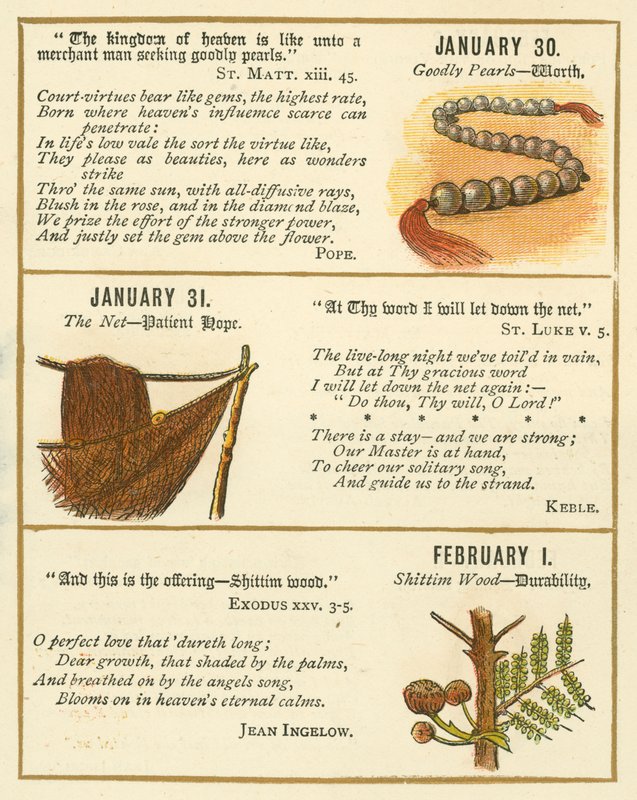 "The kingdom of heaven is like unto a
merchant man seeking goodly pearls."
St. Matt. xiii. 45.
Court-virtues bear like gems, the highest rate,
Born where heaven's influence scarce can
penetrate:
In life's low vale the sort the virtue like,
They please as beauties, here as wonders
strike
Thro' the same sun, with all-diffusive rays,
Blush in the rose, and in the diamond blaze,
We prize the effort of the stronger power,
And justly set the gem above the flower.
Pope.
JANUARY 30.
Goodly Pearls—Worth.
JANUARY 31.
The Net—Patient Hope.
"At Thy word I will let down the net."
St. Luke v. 5.
The live-long night we've toil'd in vain,
But at Thy gracious word
I will let down the net again:—
"Do thou, Thy will, O Lord!"
* * * * * *
There is a stay—and we are strong;
Our Master is at hand,
To cheer our solitary song,
And guide us to the strand.
Keble.
"And this is the offering—Shittim wood."
Exodus xxv. 3-5.
O perfect love that 'dureth long;
Dear growth, that shaded by the palms,
And breathed on by the angels song,
Blooms on in heaven's eternal calms.
Jean Ingelow.
FEBRUARY 1.
Shittim Wood—Durability.